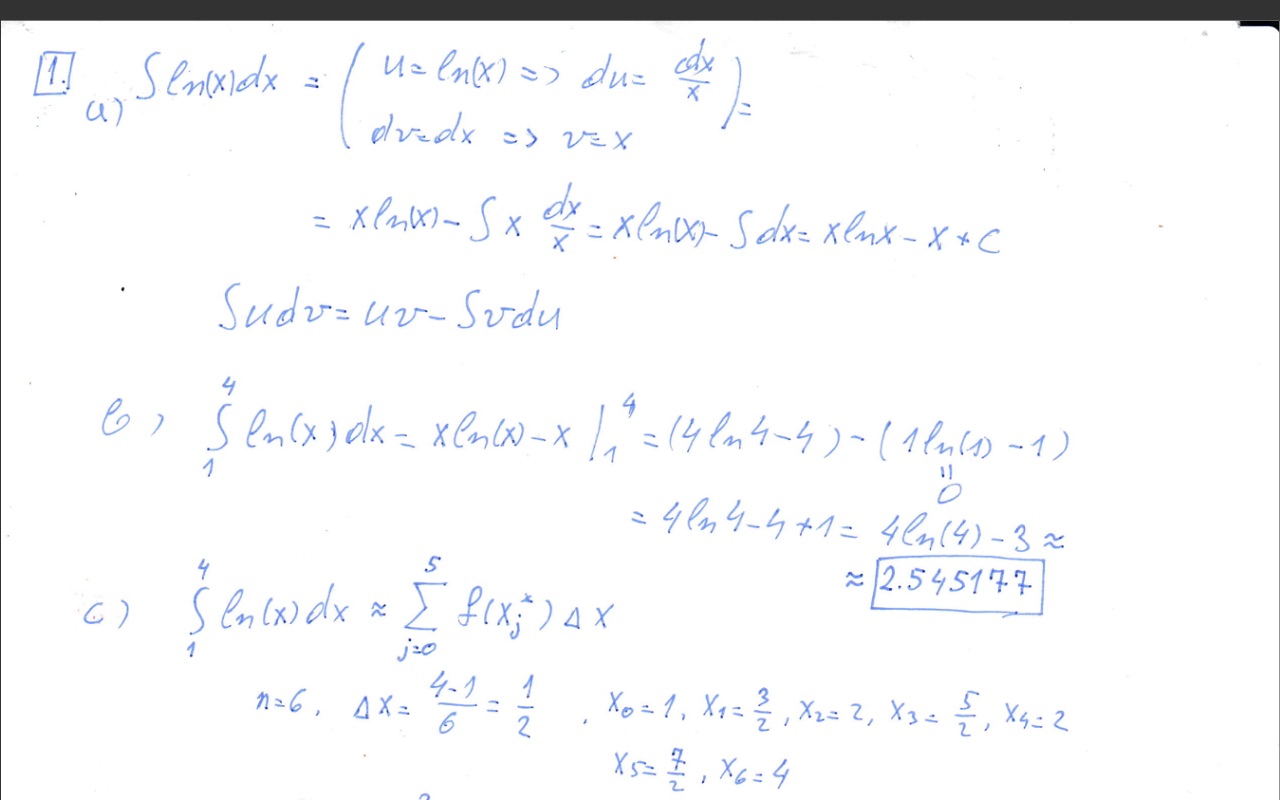 1.
a) ∫ ln(x) dx = ( u = ln(x) => du = dx/x
dv = dx => v = x ) =
= x ln(x) - ∫ x dx/x = x ln(x) - ∫ dx = x ln x - x + C
∫ u dv = uv - ∫ v du
b) ∫_1^4 ln(x) dx = x ln(x) - x |_1^4 = (4 ln 4 - 4) - (1 ln(1) - 1)
"
0
= 4 ln 4 - 4 + 1 = 4 ln(4) - 3 ≈
≈ 2.545177
c) ∫_1^4 ln(x) dx ≈ ∑_{j=0}^5 f(x_j^*) Δx
n = 6, Δx = (4-1)/6 = 1/2, x_0 = 1, x_1 = 3/2, x_2 = 2, x_3 = 5/2, x_4 = 2
x_5 = 7/2, x_6 = 4